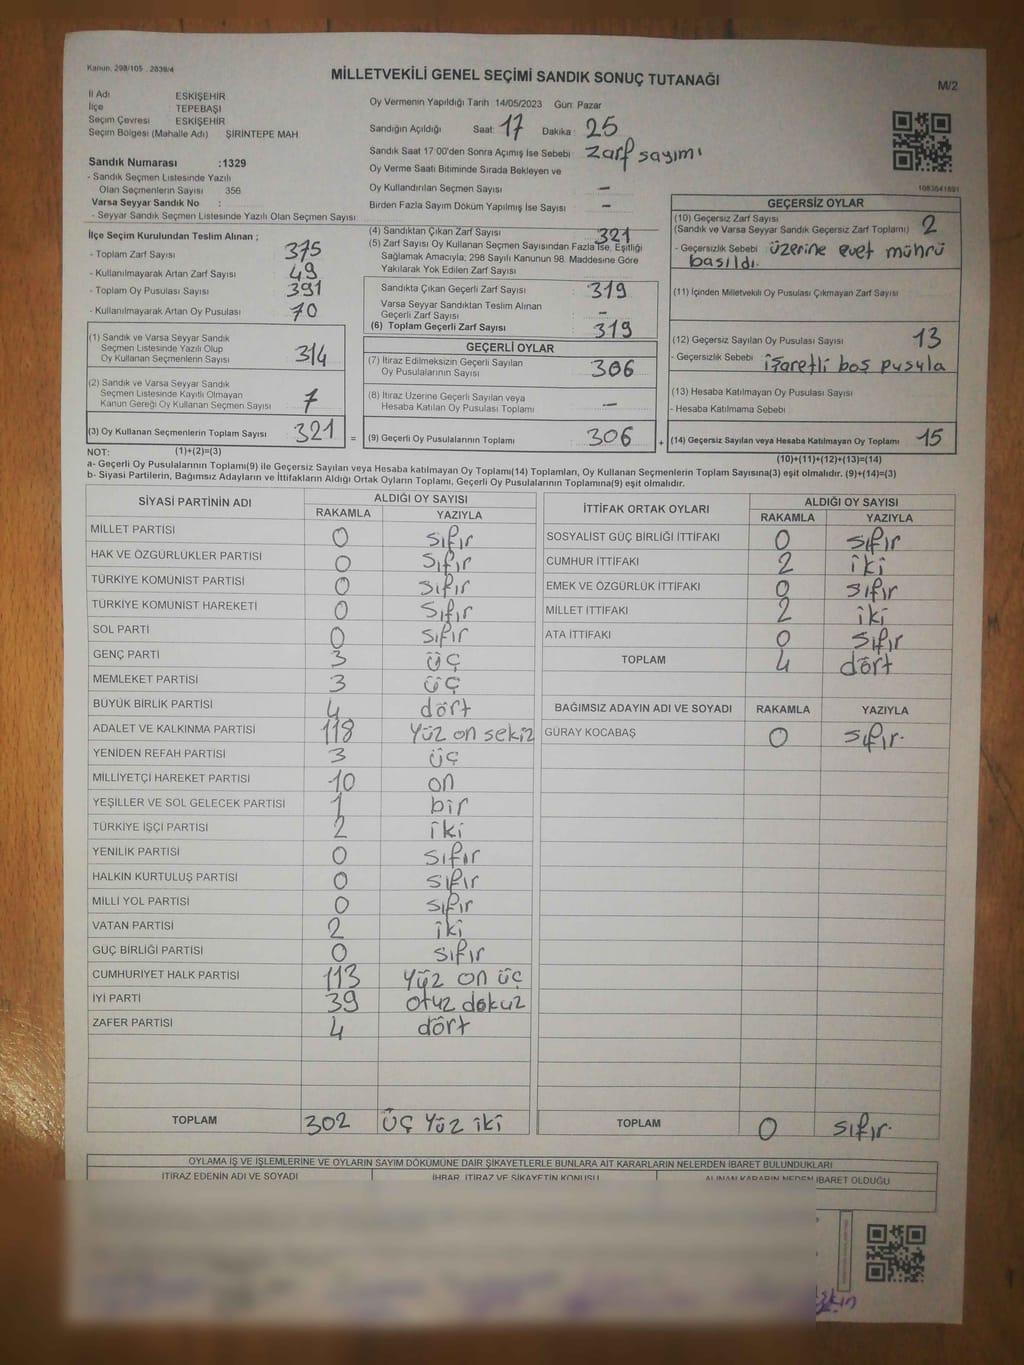 Kanun. 298/105 . 2839/4
MİLLETVEKİLİ GENEL SEÇİMİ SANDIK SONUÇ TUTANAĞI
M/2
İl Adı ESKİŞEHİR
İlçe : TEPEBAŞI
Seçim Çevresi : ESKİŞEHİR
Seçim Bölgesi (Mahalle Adı) ŞİRİNTEPE MAH
Sandık Numarası :1329
- Sandık Seçmen Listesinde Yazılı
Olan Seçmenlerin Sayısı 356
Varsa Seyyar Sandık No :
- Seyyar Sandık Seçmen Listesinde Yazılı Olan Seçmen Sayısı
Oy Vermenin Yapıldığı Tarih 14/05/2023 Gün: Pazar
Sandığın Açıldığı Saat: 17 Dakika: 25
Sandık Saat 17:00'den Sonra Açımış İse Sebebi zarf sayımı
Oy Verme Saati Bitiminde Sırada Bekleyen ve
Oy Kullandırılan Seçmen Sayısı : –
Birden Fazla Sayım Döküm Yapılmış İse Sayısı : –
1083641891
İlçe Seçim Kurulundan Teslim Alınan ;
- Toplam Zarf Sayısı : 375
- Kullanılmayarak Artan Zarf Sayısı : 49
- Toplam Oy Pusulası Sayısı : 391
- Kullanılmayarak Artan Oy Pusulası : 70
(1) Sandık ve Varsa Seyyar Sandık
Seçmen Listesinde Yazılı Olup
Oy Kullanan Seçmenlerin Sayısı : 314
(2) Sandık ve Varsa Seyyar Sandık
Seçmen Listesinde Kayıtlı Olmayan
Kanun Gereği Oy Kullanan Seçmen Sayısı : 7
(3) Oy Kullanan Seçmenlerin Toplam Sayısı : 321 =
(4) Sandıktan Çıkan Zarf Sayısı : 321
(5) Zarf Sayısı Oy Kullanan Seçmen Sayısından Fazla İse, Eşitliği
Sağlamak Amacıyla; 298 Sayılı Kanunun 98. Maddesine Göre
Yakılarak Yok Edilen Zarf Sayısı :
Sandıkta Çıkan Geçerli Zarf Sayısı : 319
Varsa Seyyar Sandıktan Teslim Alınan
Geçerli Zarf Sayısı : –
(6) Toplam Geçerli Zarf Sayısı : 319
GEÇERLİ OYLAR
(7) İtiraz Edilmeksizin Geçerli Sayılan
Oy Pusulalarının Sayısı : 306
(8) İtiraz Üzerine Geçerli Sayılan veya
Hesaba Katılan Oy Pusulası Toplamı : –
(9) Geçerli Oy Pusulalarının Toplamı : 306 +
GEÇERSİZ OYLAR
(10) Geçersiz Zarf Sayısı : 2
(Sandık ve Varsa Seyyar Sandık Geçersiz Zarf Toplamı)
- Geçersizlik Sebebi üzerine evet mührü
basıldı.
(11) İçinden Milletvekili Oy Pusulası Çıkmayan Zarf Sayısı :
(12) Geçersiz Sayılan Oy Pusulası Sayısı : 13
- Geçersizlik Sebebi : işaretli boş pusula
(13) Hesaba Katılmayan Oy Pusulası Sayısı :
- Hesaba Katılmama Sebebi :
(14) Geçersiz Sayılan veya Hesaba Katılmayan Oy Toplamı : 15
NOT: (1)+(2)=(3) (10)+(11)+(12)+(13)=(14)
a- Geçerli Oy Pusulalarının Toplamı(9) ile Geçersiz Sayılan veya Hesaba katılmayan Oy Toplamı(14) Toplamları, Oy Kullanan Seçmenlerin Toplam Sayısına(3) eşit olmalıdır. (9)+(14)=(3)
b- Siyasi Partilerin, Bağımsız Adayların ve İttifakların Aldığı Ortak Oyların Toplamı, Geçerli Oy Pusulalarının Toplamına(9) eşit olmalıdır.
SİYASİ PARTİNİN ADI ALDIĞI OY SAYISI
RAKAMLA YAZIYLA
MİLLET PARTİSİ 0 sıfır
HAK VE ÖZGÜRLÜKLER PARTİSİ 0 sıfır
TÜRKİYE KOMÜNİST PARTİSİ 0 sıfır
TÜRKİYE KOMÜNİST HAREKETİ 0 sıfır
SOL PARTİ 0 sıfır
GENÇ PARTİ 3 üç
MEMLEKET PARTİSİ 3 üç
BÜYÜK BİRLİK PARTİSİ 4 dört
ADALET VE KALKINMA PARTİSİ 118 yüz on sekiz
YENİDEN REFAH PARTİSİ 3 üç
MİLLİYETÇİ HAREKET PARTİSİ 10 on
YEŞİLLER VE SOL GELECEK PARTİSİ 1 bir
TÜRKİYE İŞÇİ PARTİSİ 2 iki
YENİLİK PARTİSİ 0 sıfır
HALKIN KURTULUŞ PARTİSİ 0 sıfır
MİLLİ YOL PARTİSİ 0 sıfır
VATAN PARTİSİ 2 iki
GÜÇ BİRLİĞİ PARTİSİ 0 sıfır
CUMHURİYET HALK PARTİSİ 113 yüz on üç
İYİ PARTİ 39 otuz dokuz
ZAFER PARTİSİ 4 dört
TOPLAM 302 üç yüz iki
İTTİFAK ORTAK OYLARI ALDIĞI OY SAYISI
RAKAMLA YAZIYLA
SOSYALİST GÜÇ BİRLİĞİ İTTİFAKI 0 sıfır
CUMHUR İTTİFAKI 2 iki
EMEK VE ÖZGÜRLÜK İTTİFAKI 0 sıfır
MİLLET İTTİFAKI 2 iki
ATA İTTİFAKI 0 sıfır
TOPLAM 4 dört
BAĞIMSIZ ADAYIN ADI VE SOYADI RAKAMLA YAZIYLA
GÜRAY KOCABAŞ 0 sıfır.
TOPLAM 0 sıfır.
OYLAMA İŞ VE İŞLEMLERİNE VE OYLARIN SAYIM DÖKÜMÜNE DAİR ŞİKAYETLERLE BUNLARA AİT KARARLARIN NELERDEN İBARET BULUNDUKLARI
İTİRAZ EDENİN ADI VE SOYADI İHBAR, İTİRAZ VE ŞİKAYETİN KONUSU ALINAN KARARIN NEDEN İBARET OLDUĞU